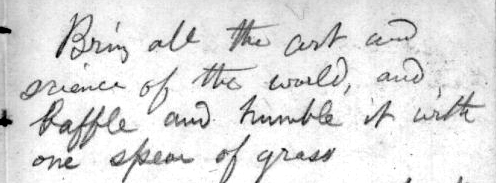 Bring all the art and
science of the world, and
baffle and humble it with
one spear of grass